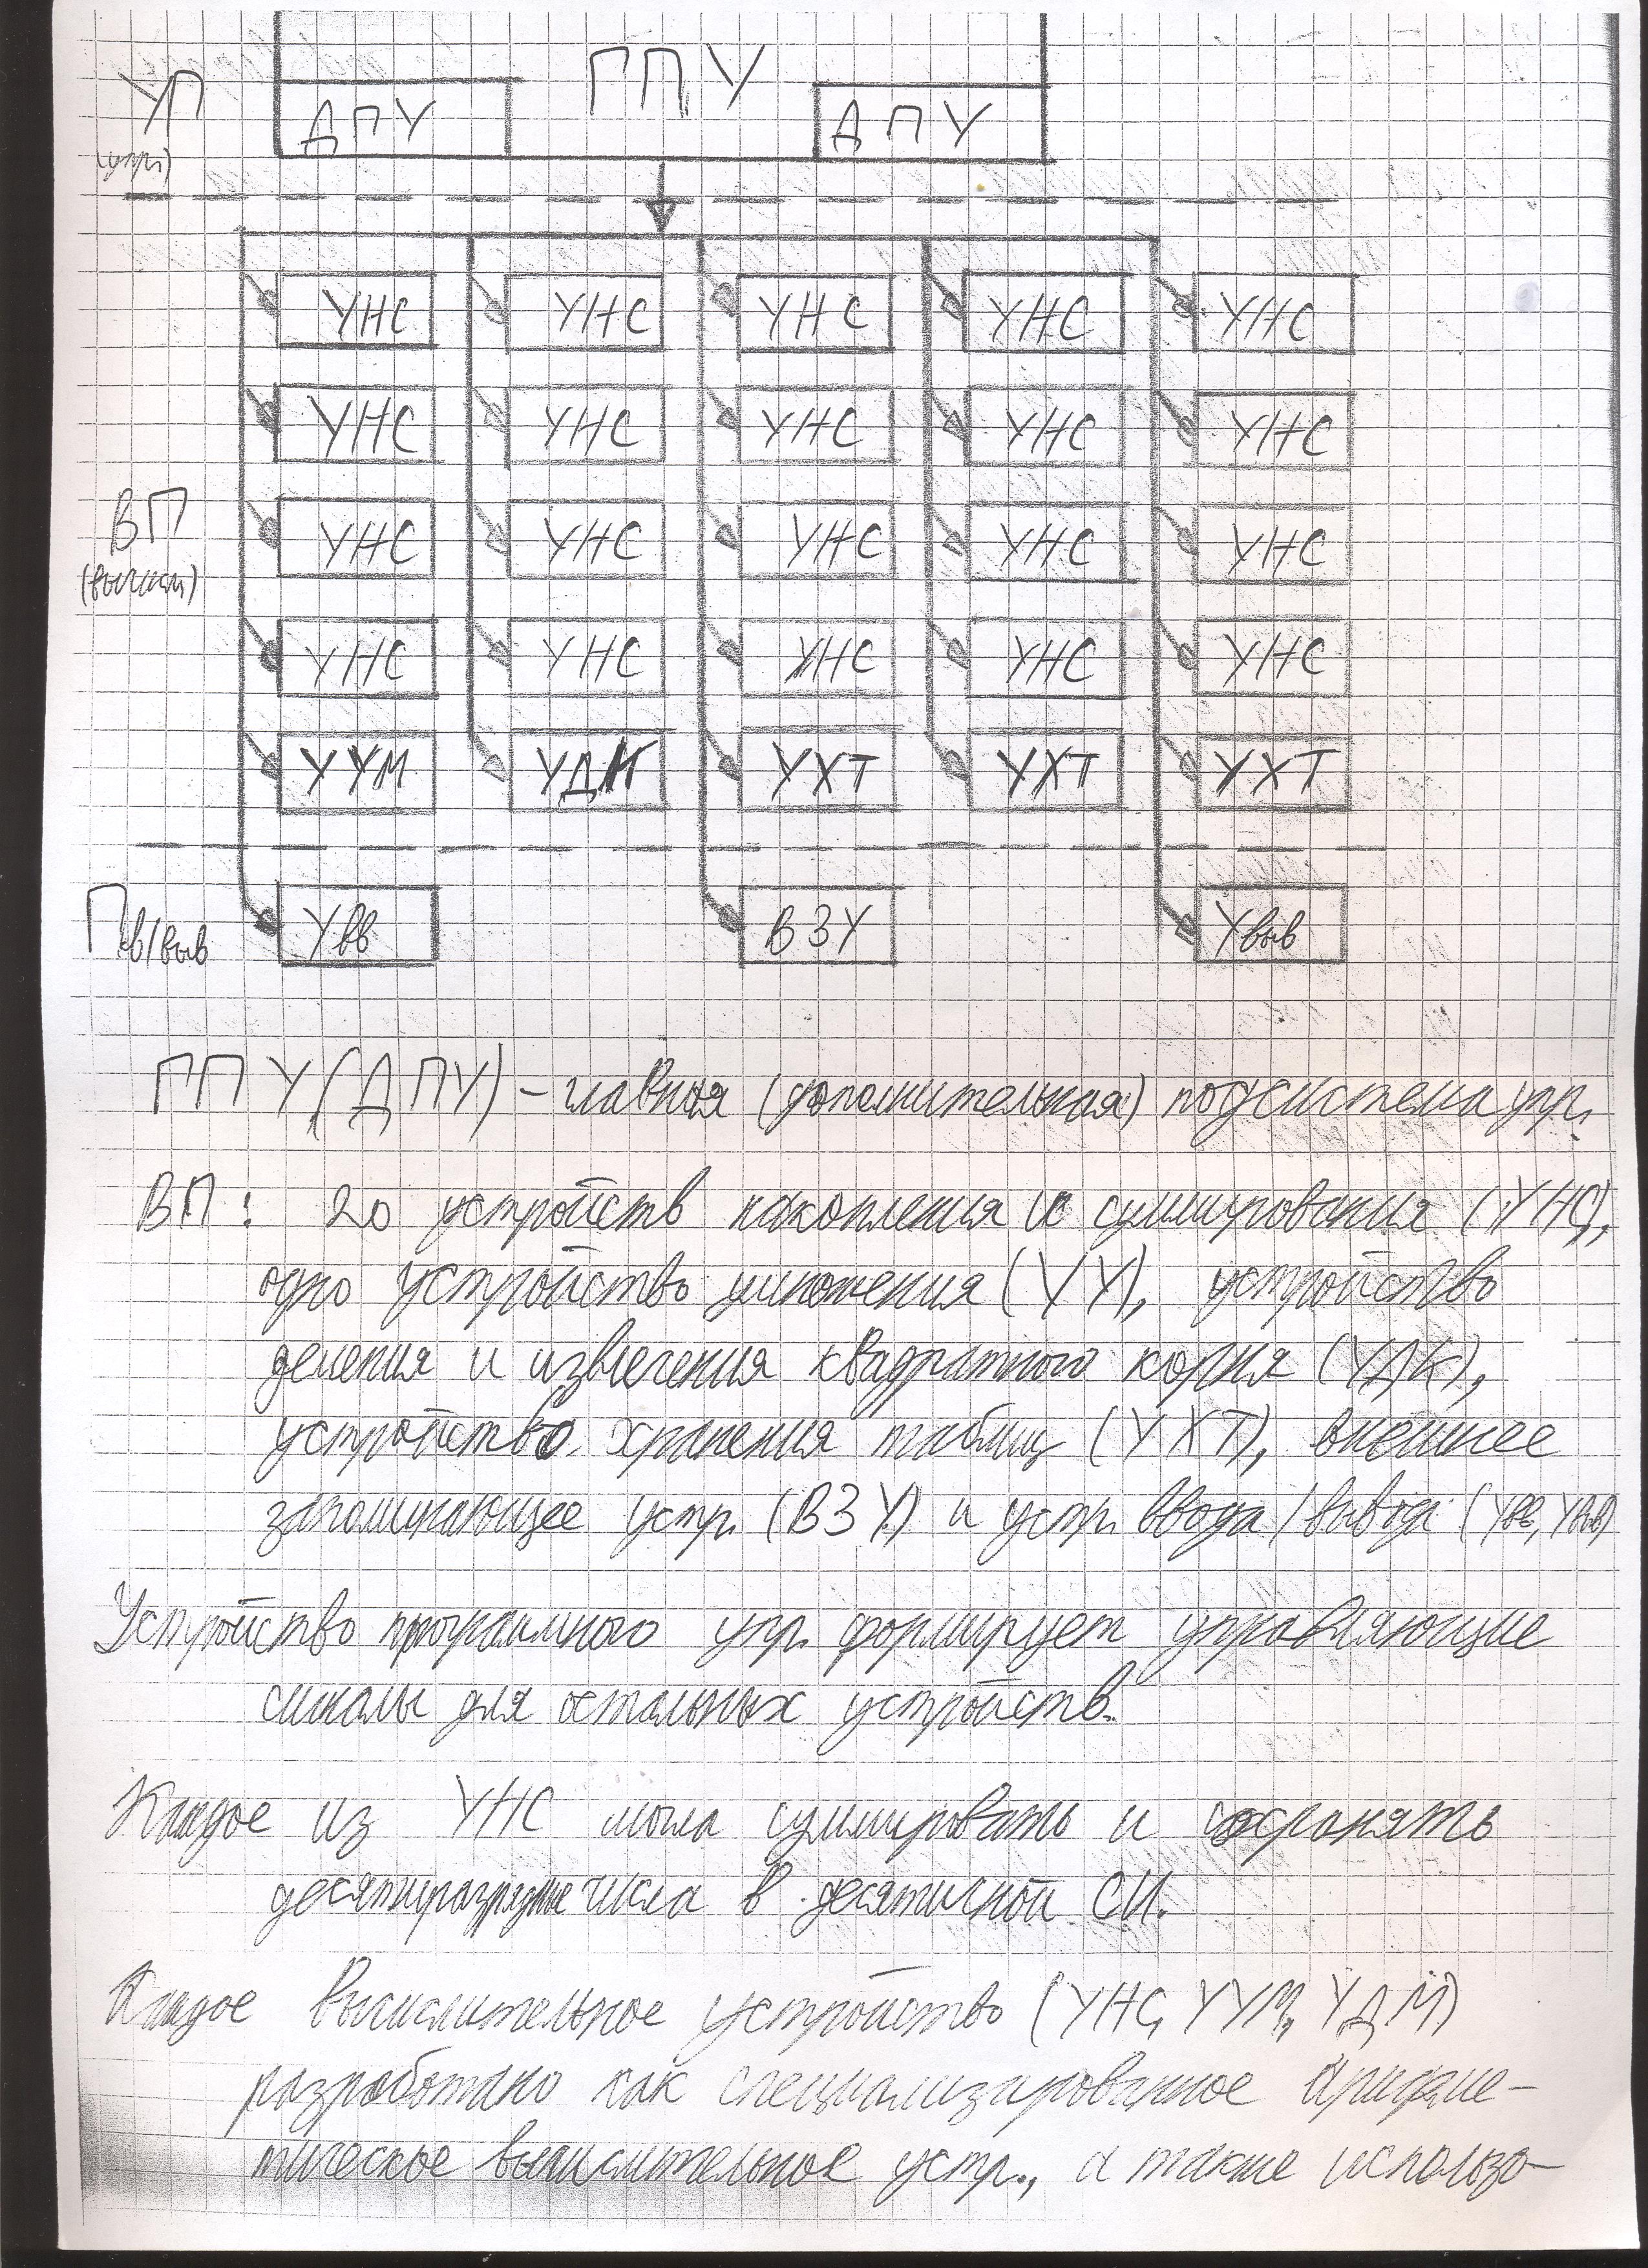 ГПУ
УП
ДПУ ДПУ
(упр)
УНС УНС УНС УНС УНС
УНС УНС УНС УНС УНС
ВП
УНС УНС УНС УНС УНС
(вычисл)
УНС УНС УНС УНС УНС
УУМ УДК УХТ УХТ УХТ
Пв/выв Увв ВЗУ Увыв
ГПУ(ДПУ) – главная (дополнительная) подсистема упр.
ВП: 20 устройств накопления и суммирования (УНС),
одно устройство умножения (УУ), устройство
деления и извлечения квадратного корня (УДК),
устройство хранения таблиц (УХТ), внешнее
запоминающее устр. (ВЗУ) и устр. ввода/вывода (Увв, Увыв)
Устройство програмного упр. формирует управляющие
сигналы для остальных устройств.
Каждое из УНС могла суммировать и сохранять
десятиразрядные числа в десятичной СИ.
Каждое вычислительное устройство (УНС, УУМ, УДМ)
разработано как специализированное Арифме-
тическое вычислительное устр., а также использо-